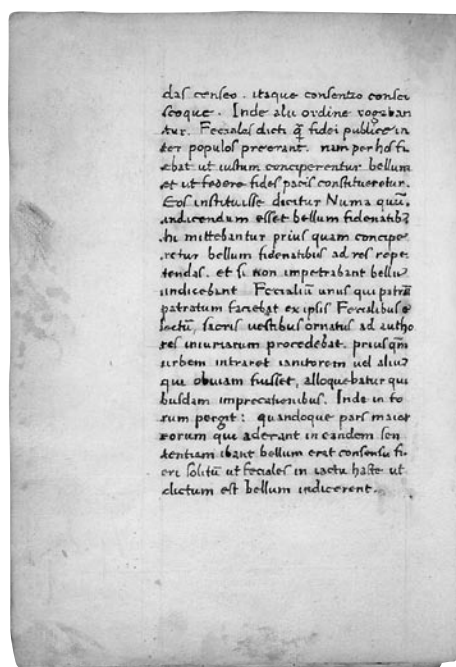 das censeo . itaque consentio consci
scoque . Inde alii ordine rogaban
tur. Feciales dicti q̄ fidei publice in
ter populos preerant. nam per hos fi
ebat ut iustum conciperentur bellum
et ut federe fides pacis constitueretur.
Eos instituisse dicitur Numa quū.
indicendum esset bellum fidenatibꝫ
hi mittebantur prius quam concipe
retur bellum fidenatibus ad res repe
tendas. et si non impetrabant bellū
indicebant Fecialiū unus qui patrē
patratum faciebat ex ipsis Fecialibus e
lectū, sacris uestibus ornatus ad autho
res iniuriarum procedebat. priusqm̄
urbem intraret ianitorem uel aliū
qui obuiam fuisset, alloquebatur qui
busdam imprecationibus. Inde in fo
rum pergit: quandoque pars maior
eorum qui aderant in eandem sen
tentiam ibant bellum erat consensu fi
eri solitū ut feciales in iactu haste ut
dictum est bellum indicerent.